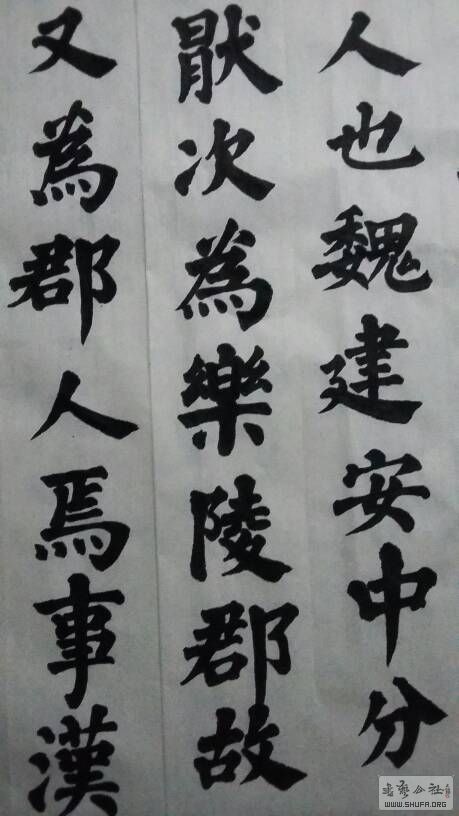 人也魏建安中分
猒次為樂陵郡故
又為郡人焉事漢
书法公社
WWW.SHUFA.ORG